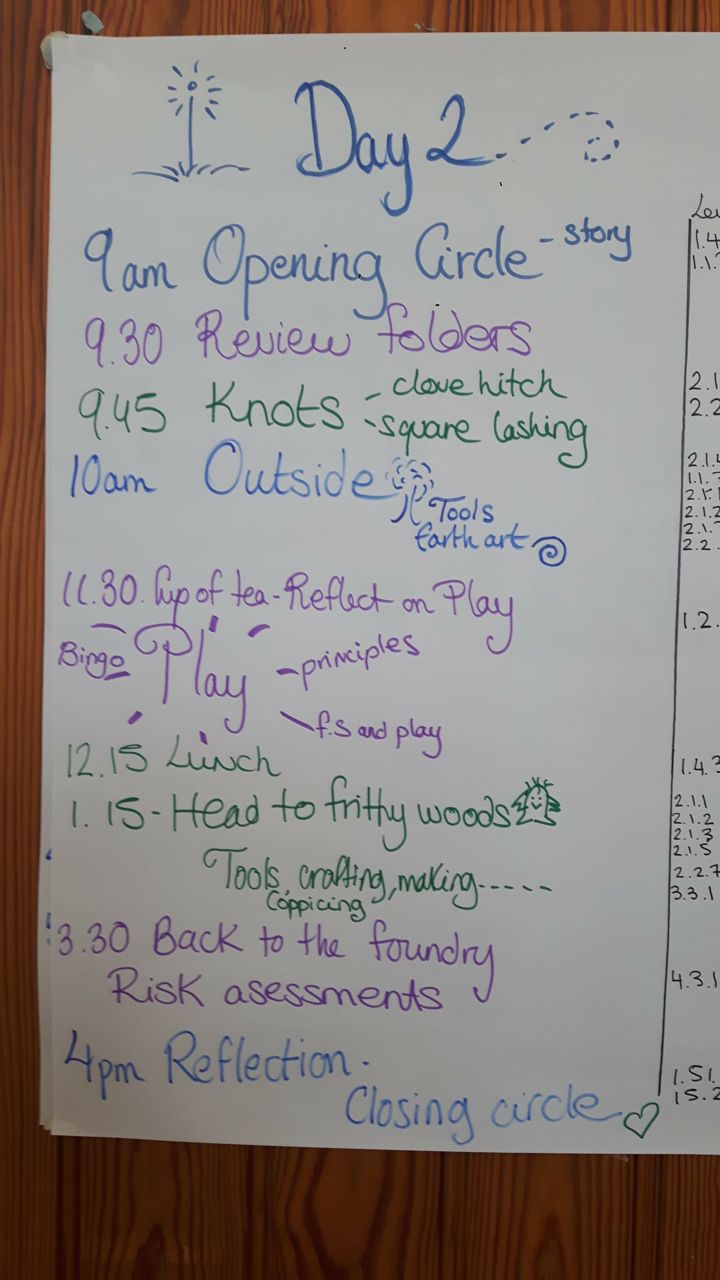 Day 2
9am Opening Circle - story
9.30 Review folders
9.45 Knots - clove hitch
- square lashing
10am Outside
Tools
Earth art
11.30. Cup of tea - Reflect on Play
Bingo Play - principles
- f.s and play
12.15 Lunch
1.15 - Head to frithy woods
Tools, crafting, making-----
Coppicing
3.30 Back to the foundry
Risk asessments
4pm Reflection.
Closing circle
1.4
2.1
2.2
2.1.4
2.1.2
1.2.
1.4.3
2.1.1
2.1.2
2.1.3
2.1.5
2.2.7
3.3.1
4.3.1
1.51.